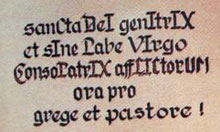 sanCta DeI genItrIX
et sIne Labe VIrgo
ConsoLatrIX affLICtorUM
ora pro
grege et pastore !